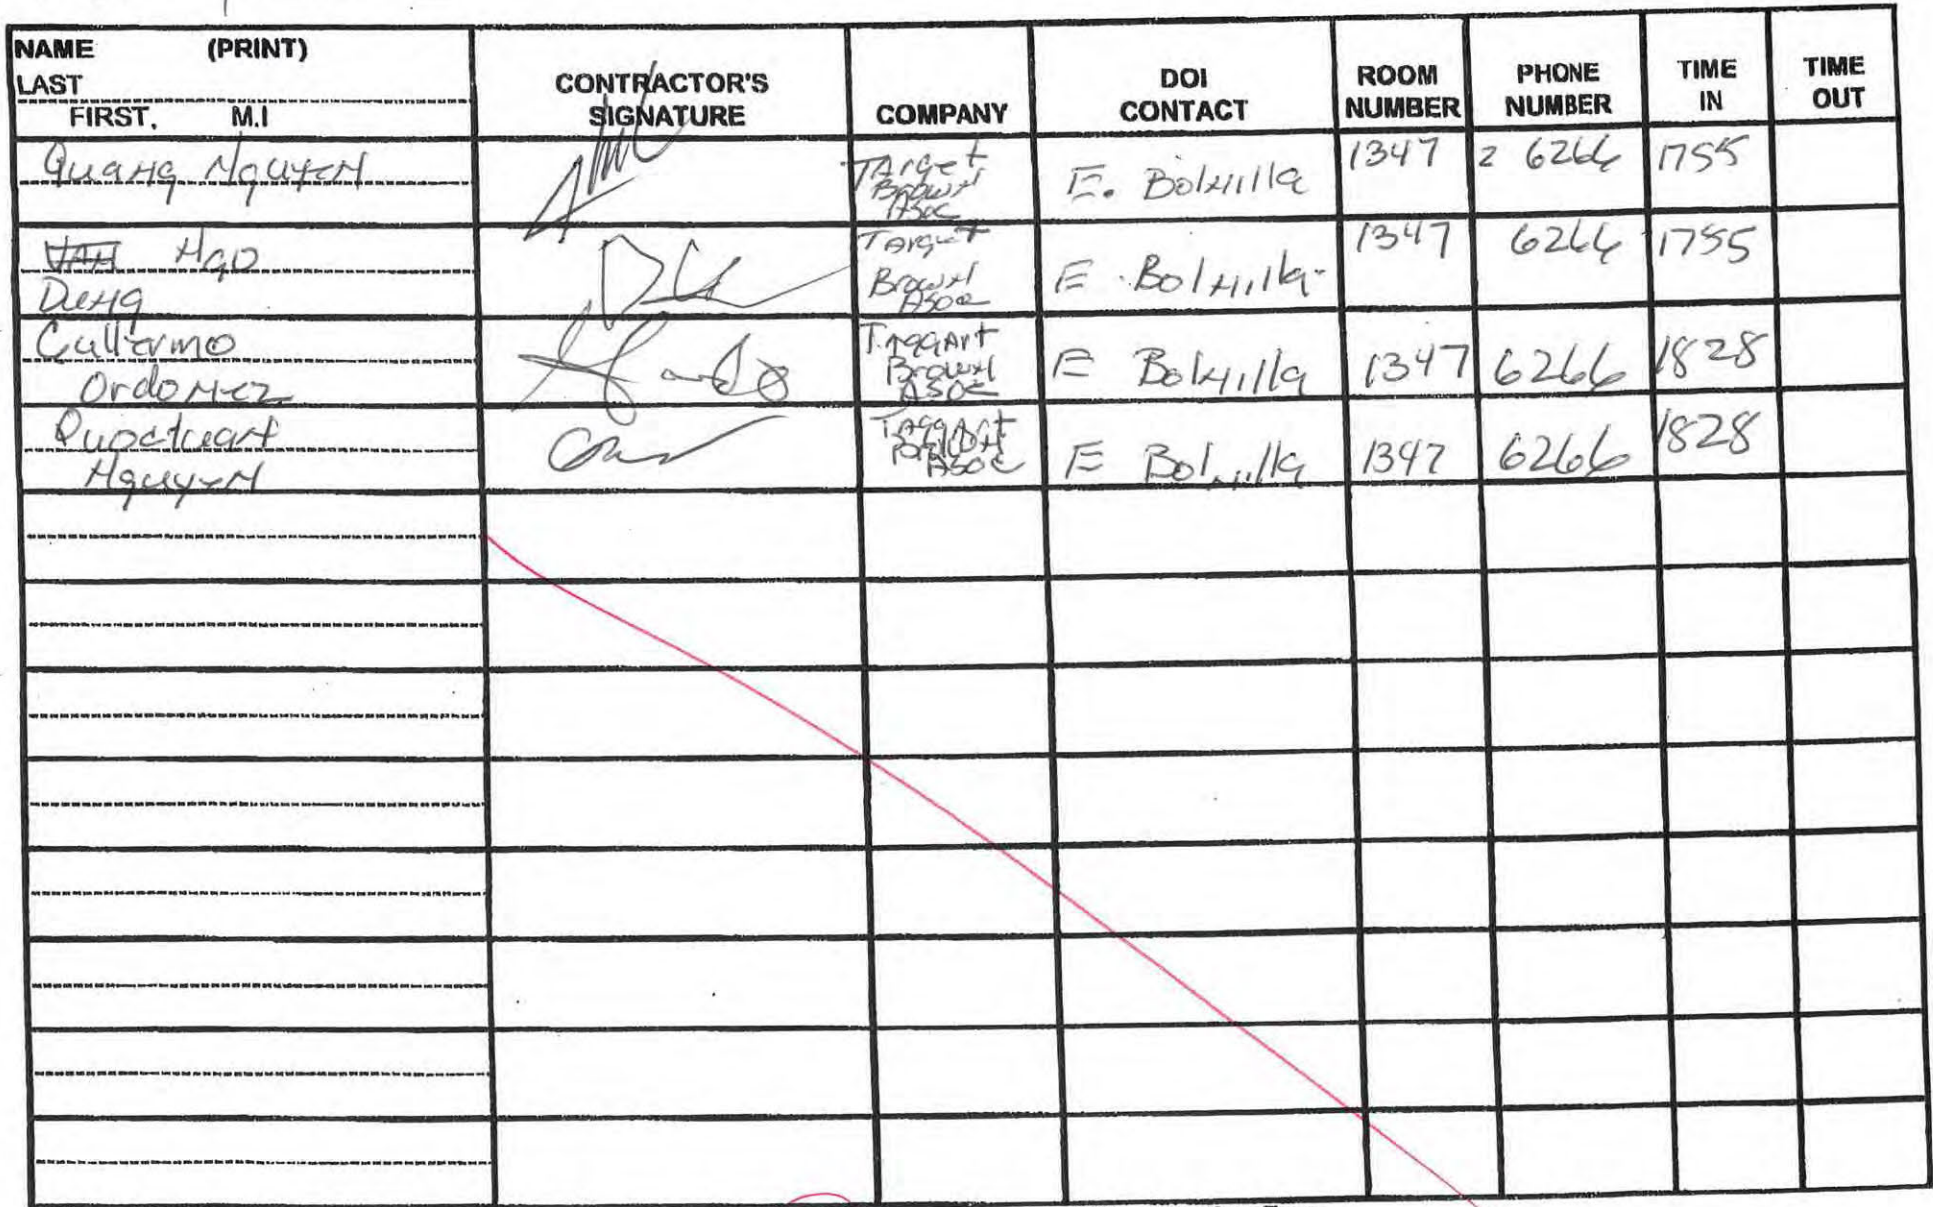 NAME (PRINT)
LAST
FIRST, M.I
CONTRACTOR'S
SIGNATURE
COMPANY
DOI
CONTACT
ROOM
NUMBER
PHONE
NUMBER
TIME
IN
TIME
OUT
Quang Nguyen
Target
Brown
Asoc
E. Bolnilla
1347
2 6266
1755
VAN Ngo
Dung
Target
Brown
Asoc
E. Bolnilla
1347
6266
1755
Gullermo
Ordonez
Taggart
Brown
Asoc
E Bolnilla
1347
6266
1828
Quoctuan
Nguyen
Taggart
Brown
Asoc
E Bolnilla
1347
6266
1828